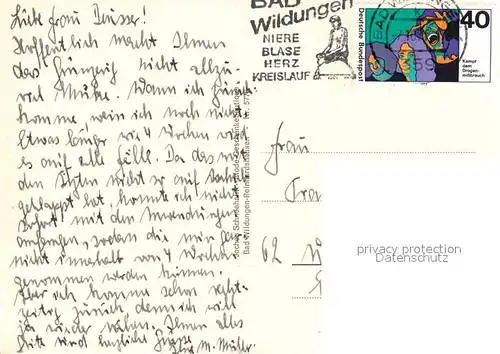 Liebe Frau Deusser!
Hoffentlich macht Ihnen
das
nicht allzu
viel Mühe. Wann ich zurück
komme, weiß ich noch nicht.
Etwas länger wie 4 Wochen wird
es auf alle Fälle. Da das mit
den nicht so auf Anhieb
geklappt hat, konnte ich nicht
sofort mit den Anwendungen
anfangen, sodass die mir
nicht innerhalb von 4 Wochen
genommen werden können.
Aber ich komme schon recht-
zeitig zurück denn ich will
ja wieder nähen. Ihnen alles
Gute und herzliche Grüsse
Ihre M. Müller
BAD
Wildungen
NIERE
BLASE
HERZ
KREISLAUF
BAD WI
359
Deutsche Bundespost
40
Kampf
dem
Drogen-
mißbrauch
Bad Wildungen-Reinhardshausen
Frau
62 W
privacy protection
Datenschutz